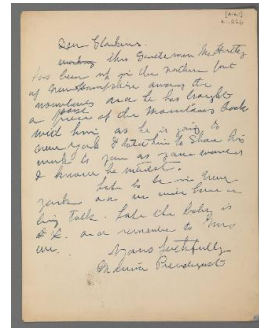 Dear Glackens.
this Gentleman Mr Hartley
has been up in the nothern part
of New Hampshire among the
mountains and he has brought
a piece of the mountains back
with him as he is going to
New York I told him to show his
work to you as you
I know be interest.
to be in New
York and we will have a
long talk. the baby is
O.K. and remember to yours
Yours faithfully
Maurice Prendergast